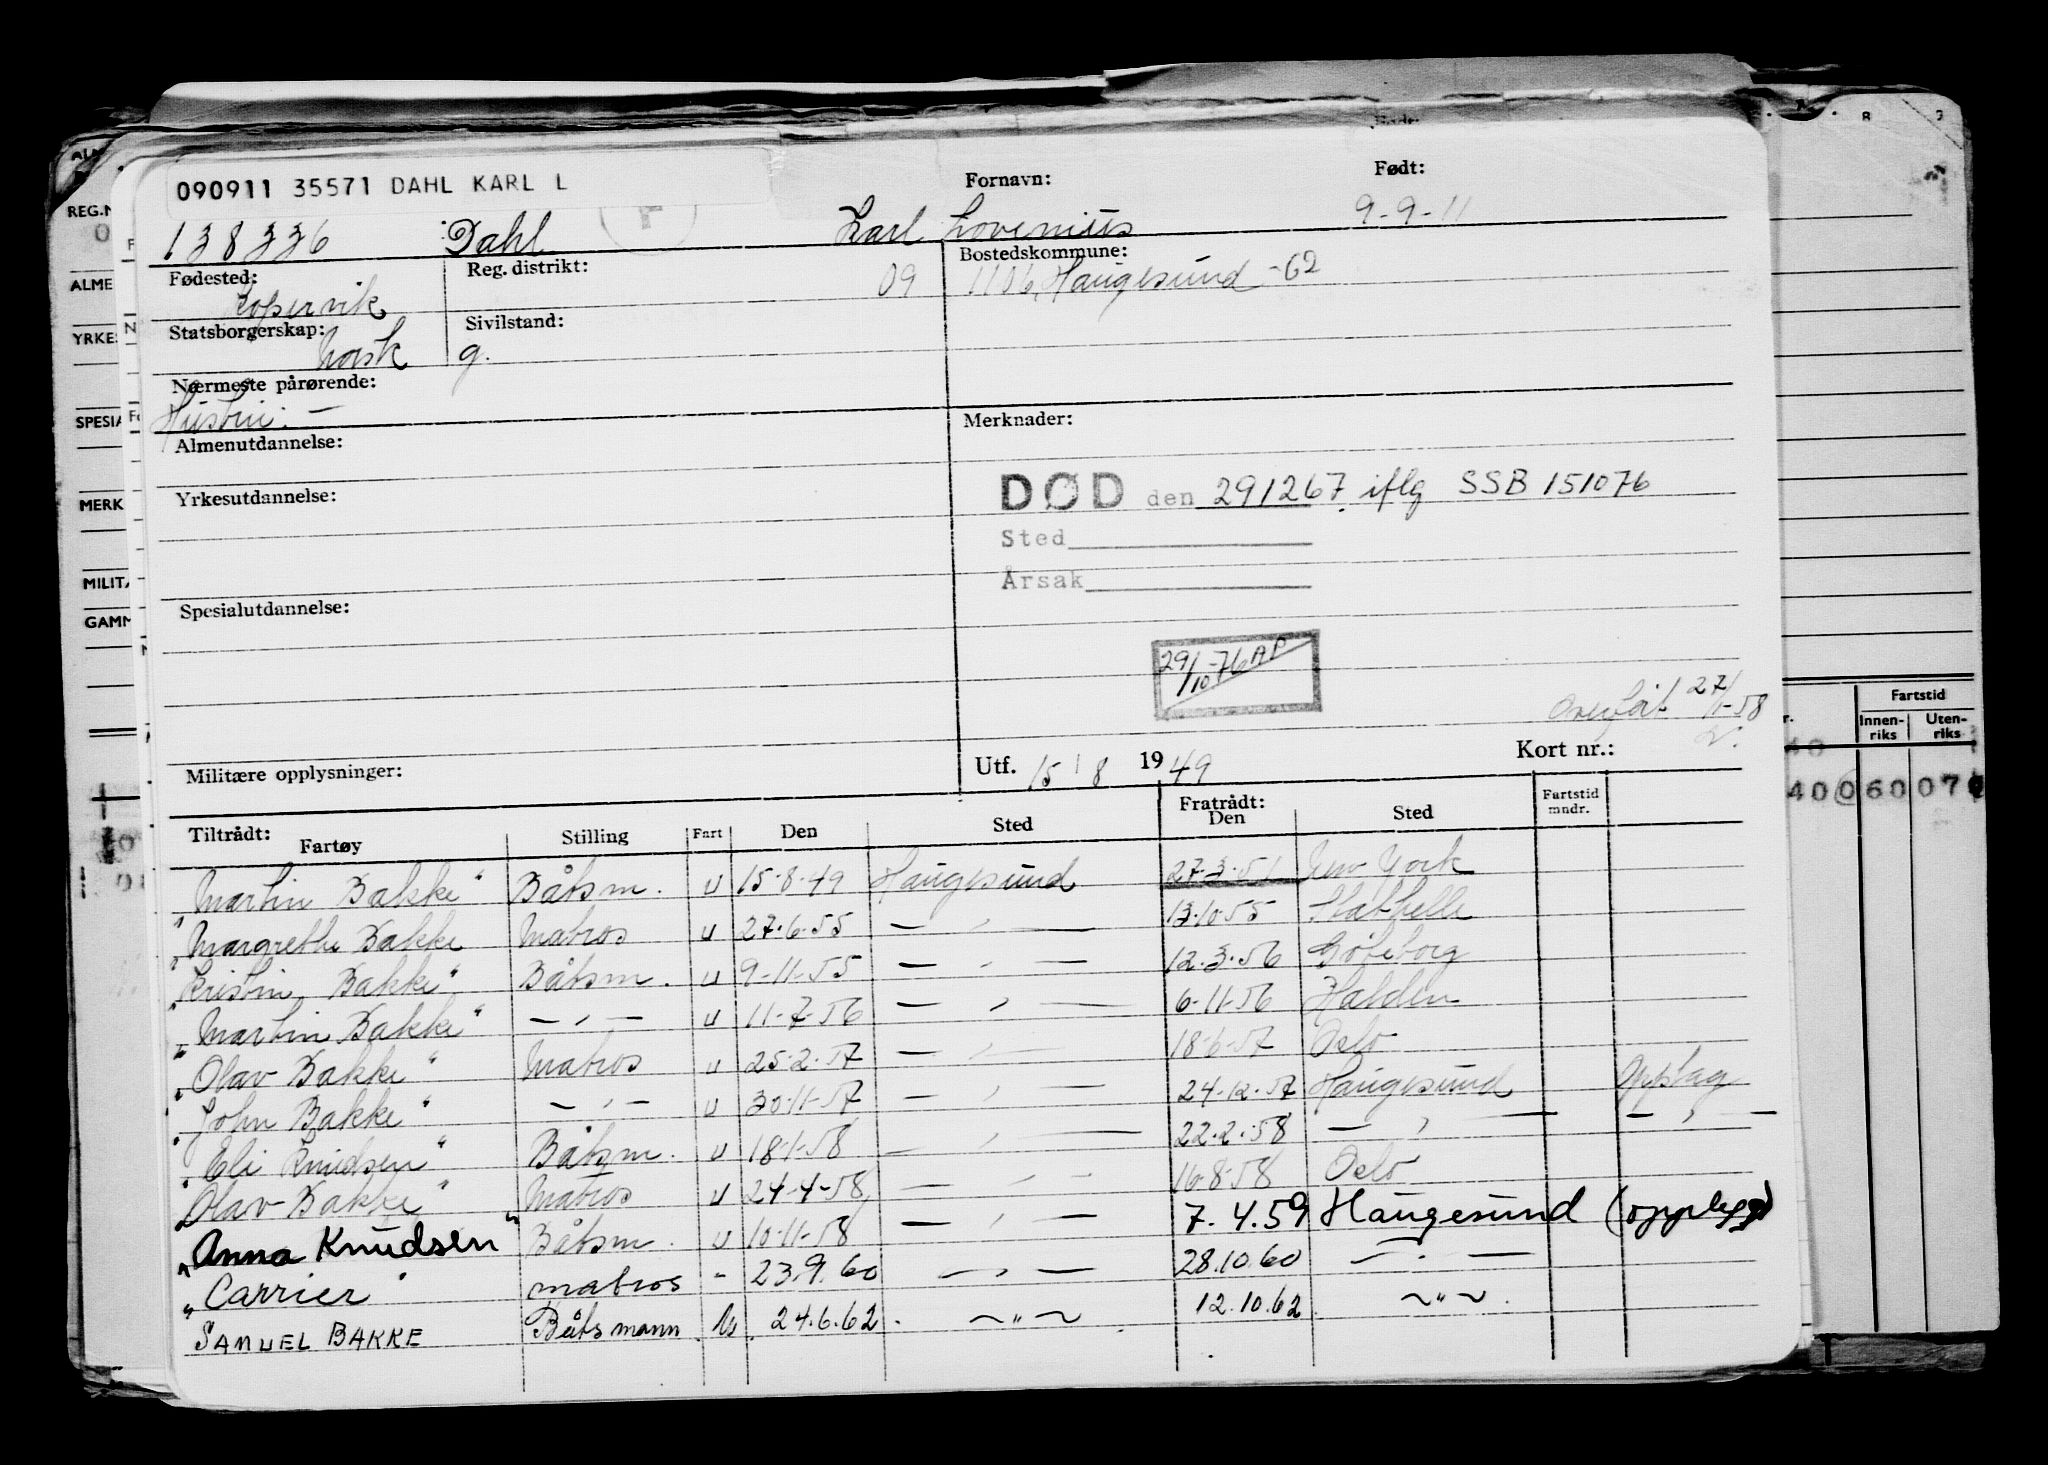 090911 35571 DAHL KARL L
Fornavn:
Født:
138336 Dahl Karl Lovenius 9-9-11
Fødested: Reg. distrikt: Bostedskommune:
Kopervik 09 1106, Haugesund -62
Statsborgerskap: Sivilstand:
Norsk g.
Nærmeste pårørende:
Hustru: —
Almenutdannelse: Merknader:
Yrkesutdannelse:
DØD den 291267 iflg SSB 151076
Sted
Årsak
Spesialutdannelse:
29/10-76 AP
Overført 27/1-58
Militære opplysninger: Utf. 15/8 1949 Kort nr.:
Tiltrådt: Fartøy Stilling Fart Den Sted Fratrådt: Den Sted Fartstid mndr.
"Martin Bakke" Båtsm. u 15-8-49 Haugesund 27-3-51 New York
"Margrethe Bakke Matros u 27-6-55 — " — 13-10-55 Stathelle
"Kristin Bakke" Båtsm. u 9-11-55 — " — 12-3-56 Göteborg
"Martin Bakke" — " — u 11-7-56 — " — 6-11-56 Halden
"Olav Bakke" Matros u 25-2-57 — " — 18-6-57 Oslo
"John Bakke" — " — u 30-11-57 — " — 24-12-57 Haugesund Opplag
"Eli Knudsen" Båtsm. u 18-1-58 — " — 22-2-58 — " — — " —
"Olav Bakke" Matros u 24-4-58 — " — 16-8-58 Oslo
"Anna Knudsen" Båtsm. u 10-11-58 — " — 7.4.59 Haugesund (opplegg)
"Carrier" matros - 23.9.60 — " — 28.10.60 — " —
SAMUEL BAKKE Båtsmann. U. 24.6.62. ~ " ~ 12.10.62. ~ " ~.
REG.N
ALME
YRKES
SPESIA
MERK
MILITÆ
GAMM
Fartstid
Innenriks Utenriks
40 060 07